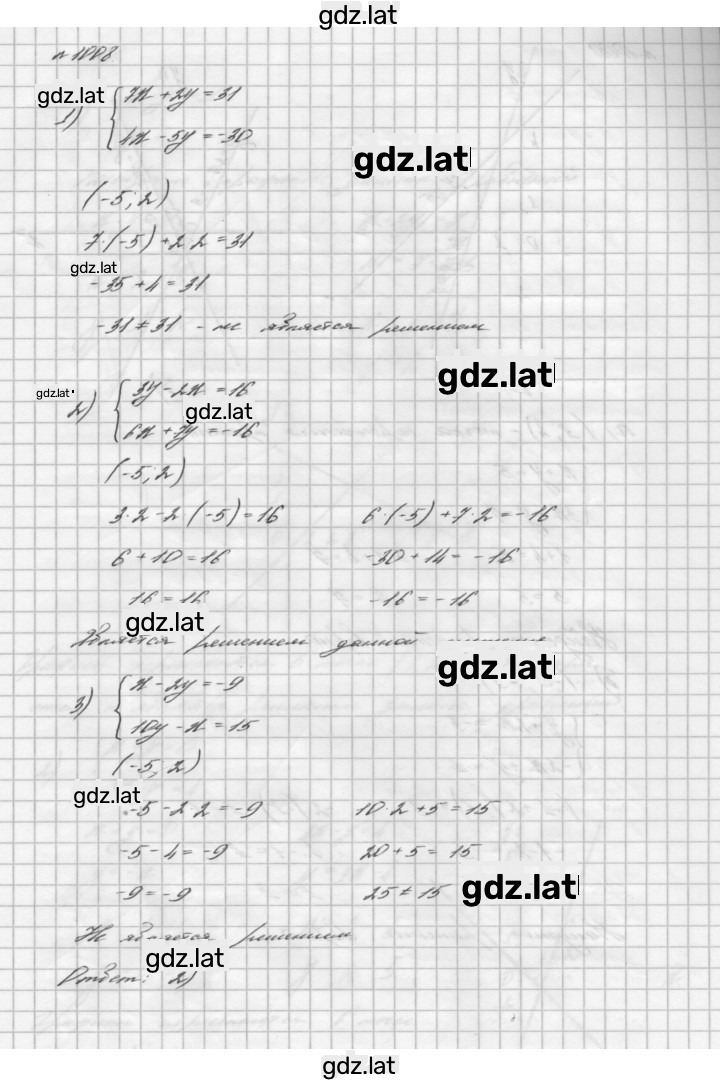 gdz.lat
№ 1008
gdz.lat
1) { 7x + 2y = 31
4x - 5y = -30
gdz.lat
(-5; 2)
7·(-5) + 2·2 = 31
gdz.lat
-35 + 4 = 31
-31 ≠ 31 - не является решением
gdz.lat
gdz.lat
2) { 3y - 2x = 16
gdz.lat
6x + 7y = -16
(-5; 2)
3·2 - 2·(-5) = 16 6·(-5) + 7·2 = -16
6 + 10 = 16 -30 + 14 = -16
16 = 16 -16 = -16
gdz.lat
Является решением данной
gdz.lat
3) { x - 2y = -9
10y - x = 15
(-5; 2)
gdz.lat
-5 - 2·2 = -9 10·2 + 5 = 15
-5 - 4 = -9 20 + 5 = 15
-9 = -9 25 ≠ 15
gdz.lat
Не является решением
gdz.lat
Ответ: 2)
gdz.lat